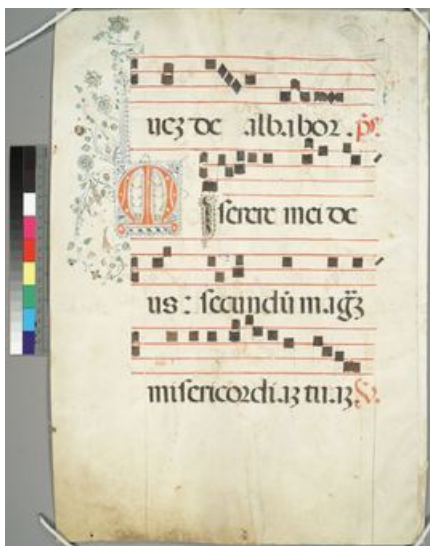 uez de albabor. ps.
Miserere mei de
us: secundū magȝ
misericordiaȝ tuaȝ V.